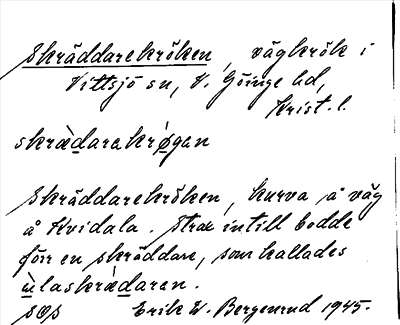 Skräddarekröken, vägkrök i
Vittsjö sn, V. Göinge hd,
Krist. l.
skræ̀darakrø̀gan
Skräddarekröken, kurva å väg
å Hvidala. Strax intill bodde
förr en skräddare, som kallades
ùlaskræ̀daren.
Erik W. Bergenrud 1945.